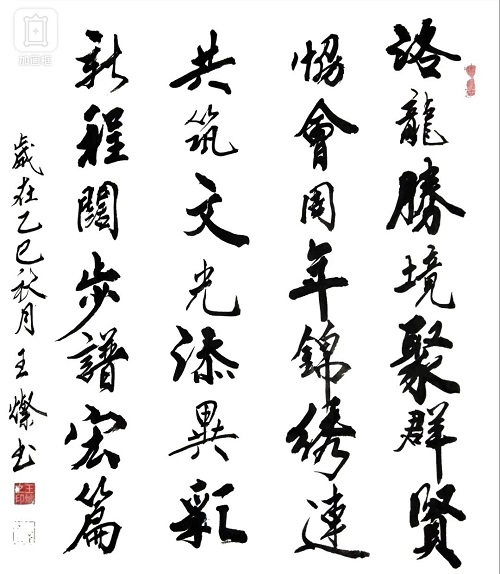 洛龍勝境聚群賢
恊會周年錦綉連
共筑文光添異彩
新程闊步譜宏篇
歲在乙巳秋月王燦书